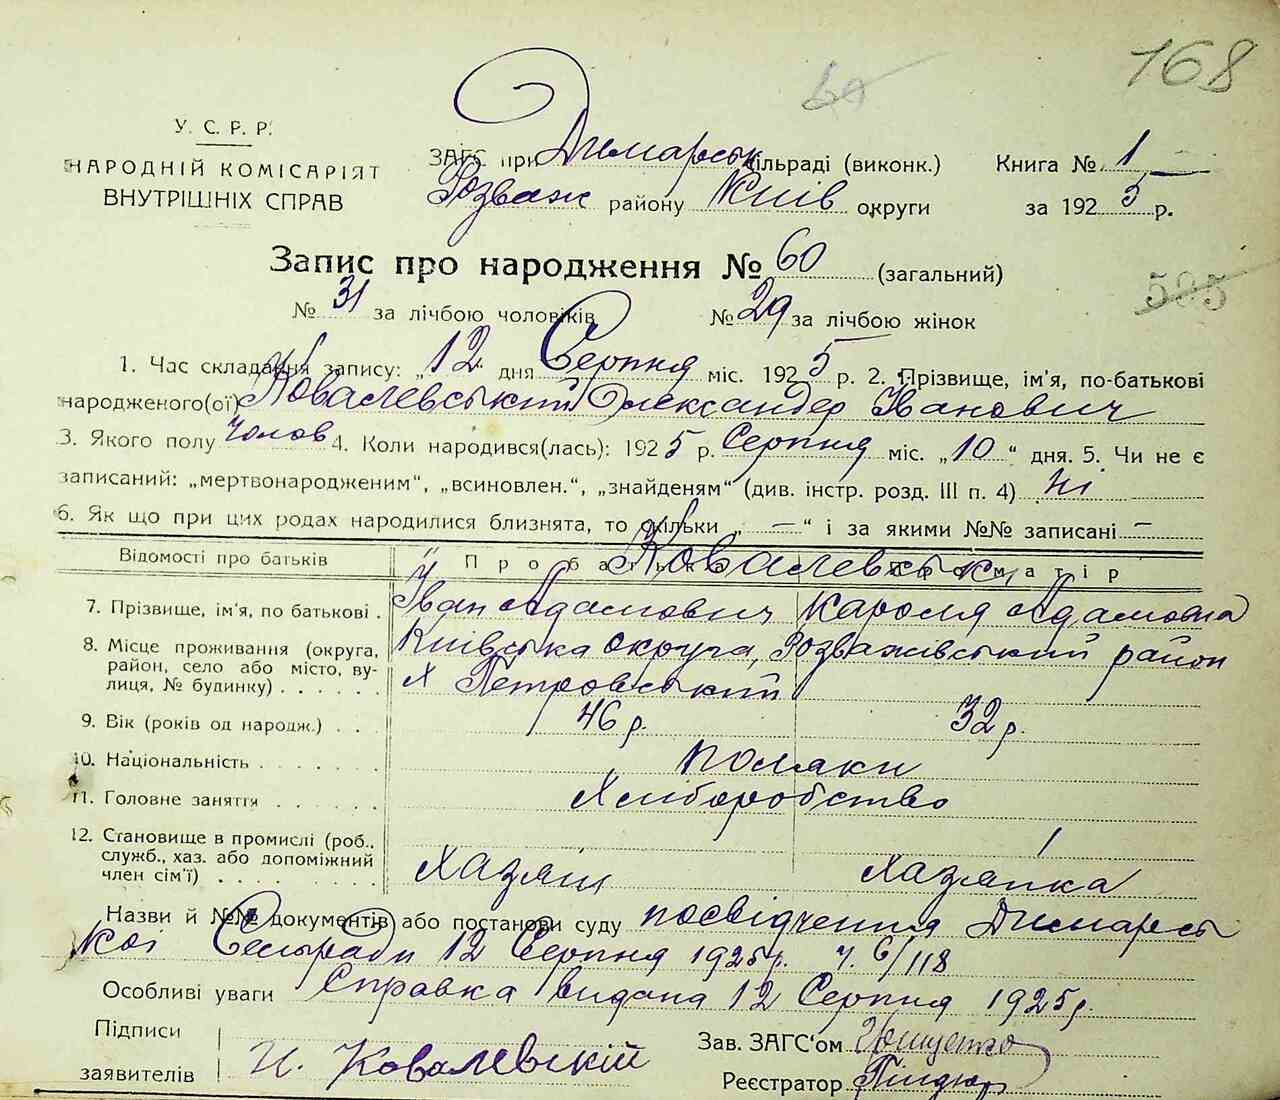 168
У. С. Р. Р.
НАРОДНІЙ КОМІСАРІЯТ
ВНУТРІШНІХ СПРАВ
ЗАГС при Димарськ сільраді (виконк.) Книга № 1
Розваж району Київ округи за 1925 р.
Запис про народження № 60 (загальний)
505
№ 31 за лічбою чоловіків № 29 за лічбою жінок
1. Час складання запису: „12“ дня Серпня міс. 1925 р. 2. Прізвище, ім'я, по-батькові
народженого(ої) Ковалевський Олександер Іванович
3. Якого полу чолов 4. Коли народився(лась): 1925 р. Серпня міс. „10“ дня. 5. Чи не є
записаний: „мертвонародженим“, „всиновлен.“, „знайденям“ (див. інстр. розд. III п. 4) ні
6. Як що при цих родах народилися близнята, то скільки „ — “ і за якими №№ записані —
Відомості про батьків Про батька Про матір
Ковалевські
7. Прізвище, ім'я, по батькові . Іван Адамович Кароля Адамовна
8. Місце проживання (округа, Київська округа, Розважівський район
район, село або місто, ву-
лиця, № будинку) . . . . . . х Петровський
9. Вік (років од народж.) . . . 46 р. 32 р.
10. Національність . . . . . . поляки
11. Головне заняття . . . . . . Хліборобство
12. Становище в промислі (роб.,
служб., хаз. або допоміжний
член сім'ї) . . . . . . . . Хазяїн Хазяйка
Назви й №№ документів або постанови суду посвідчення Димарсь
кої Сельради 12 Серпня 1925р. ч. 6/118
Особливі уваги Справка видана 12 Серпня 1925р.
Підписи
заявителів И. Ковалевскій
Зав. ЗАГС'ом
Реєстратор